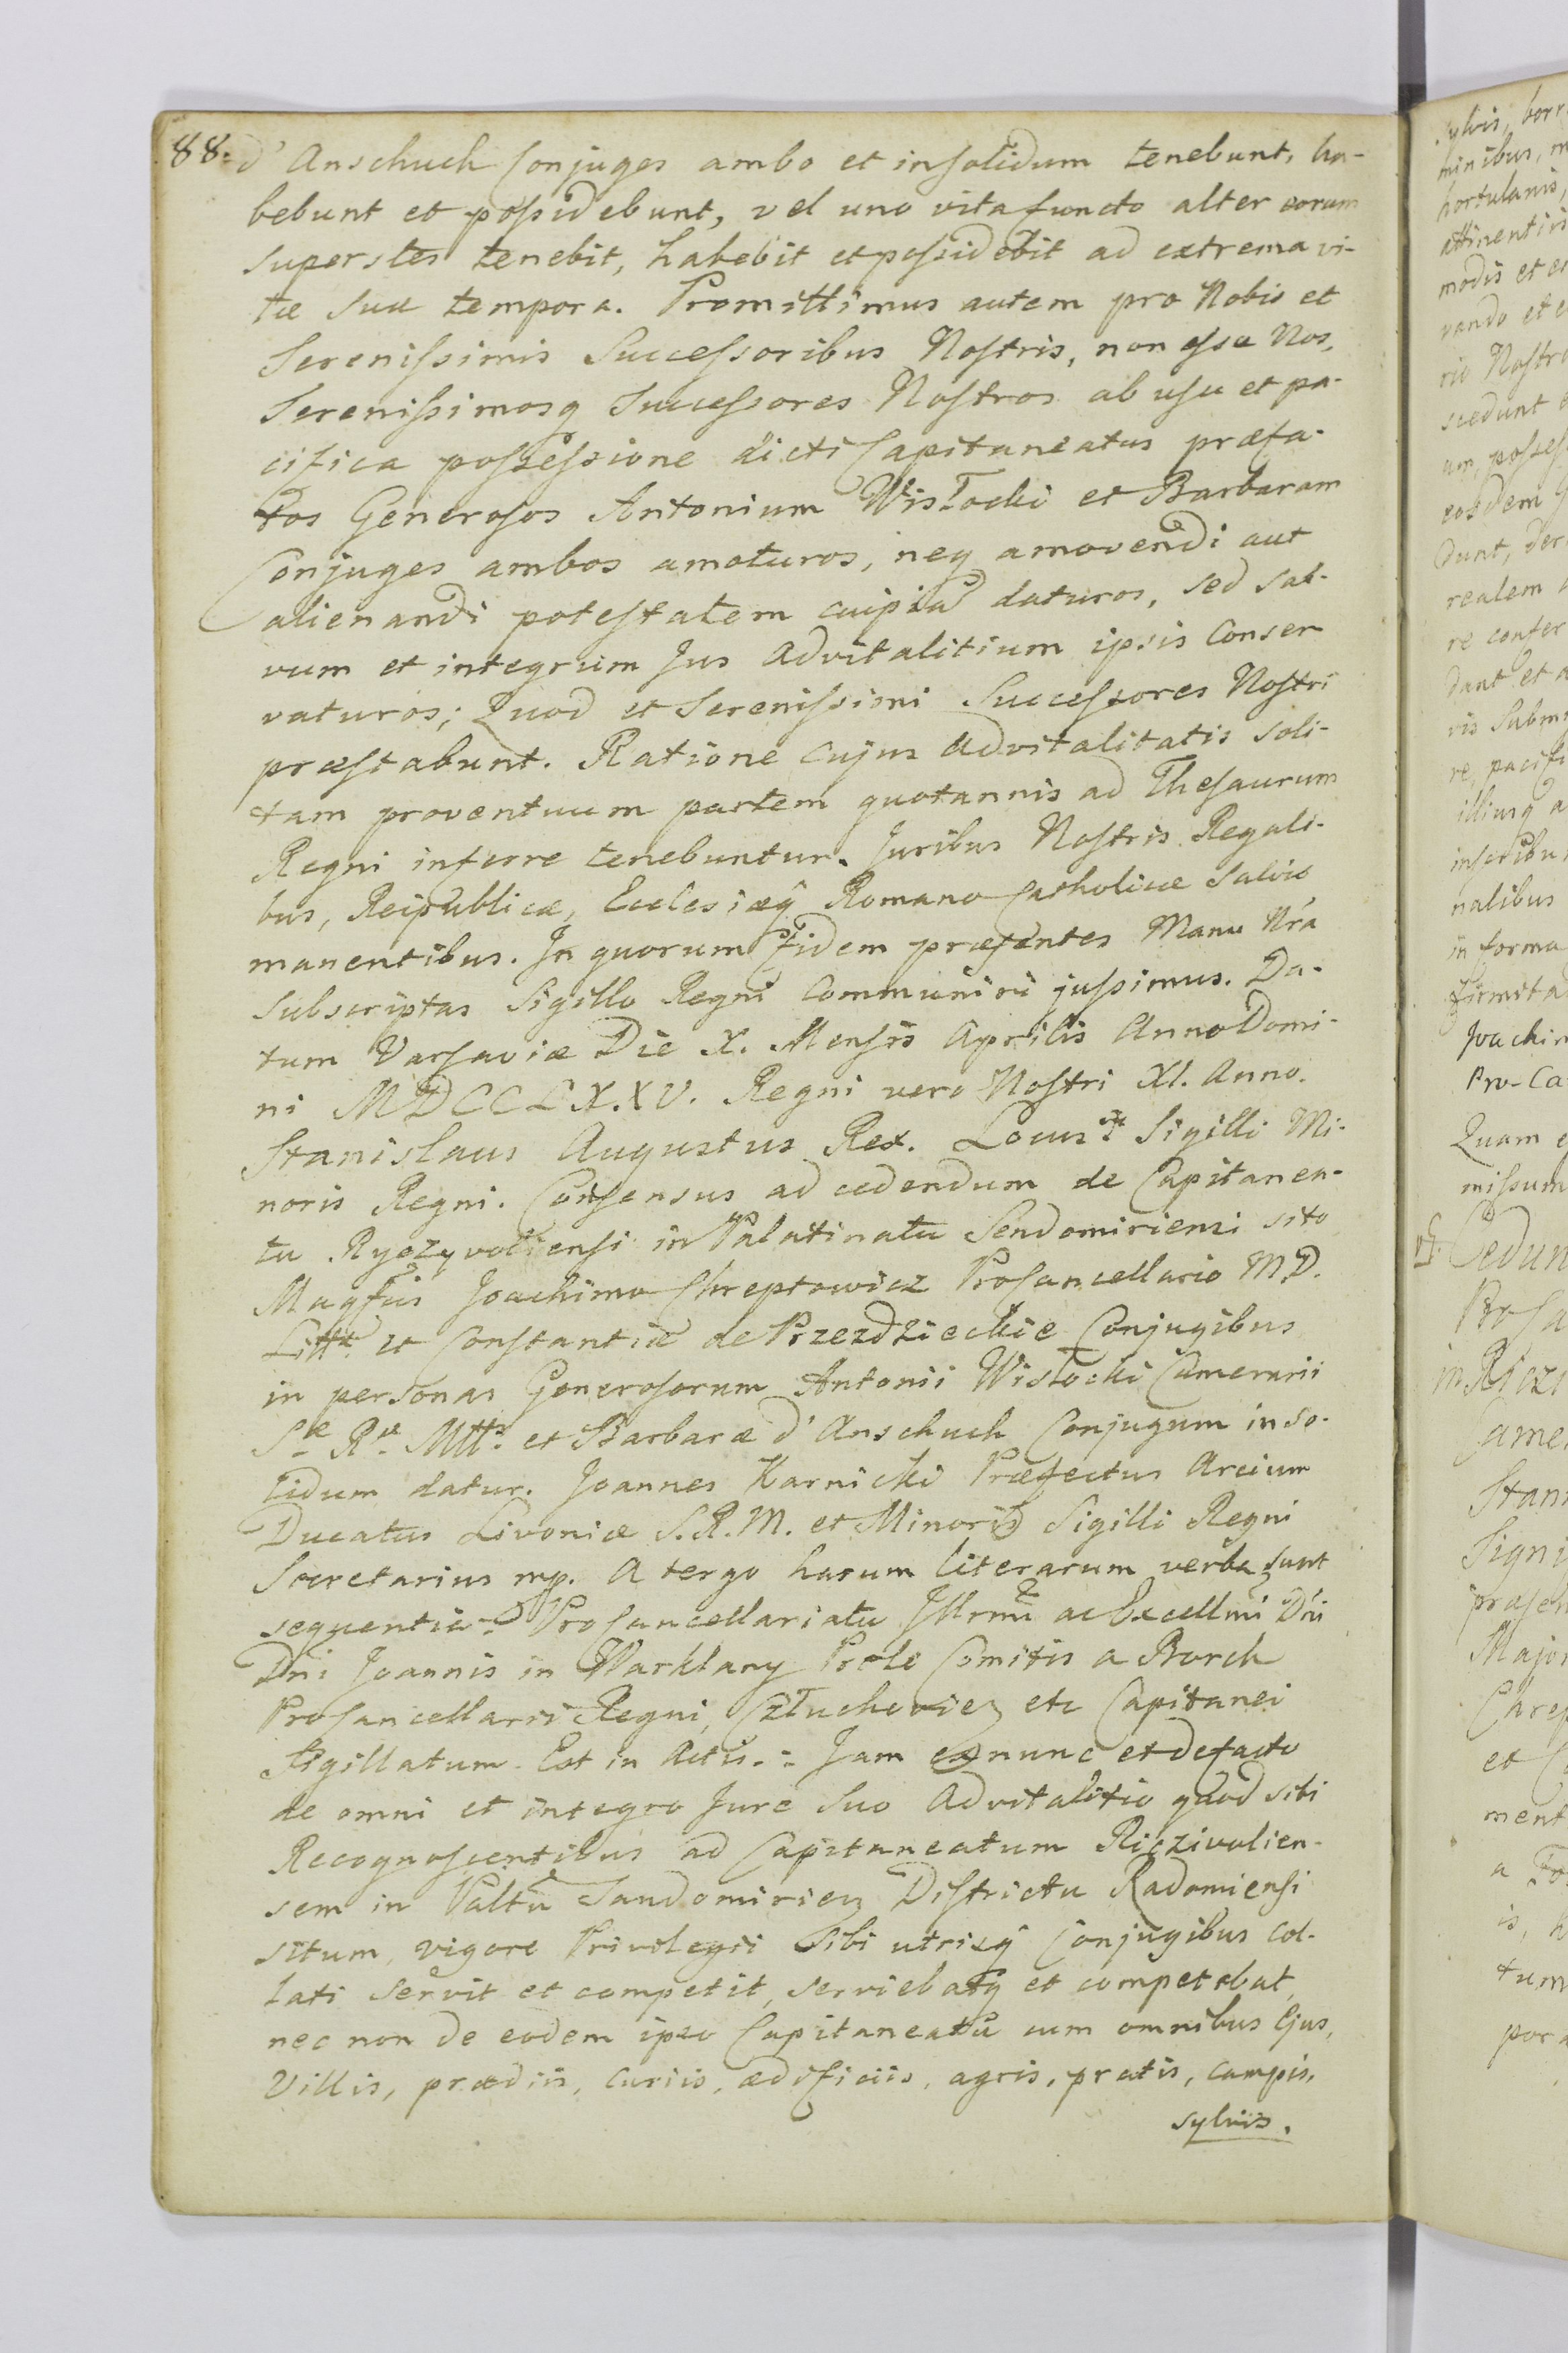 88. d' Anschuch Conjuges ambo et insolidum tenebunt, ha-
bebunt et possidebunt, vel uno vita functo alter eorum
superstes tenebit, habebit et possidebit ad extrema vi-
tæ suæ tempora. Promittimus autem pro Nobis et
Serenissimis Successoribus Nostris, non esse Nos,
Serenissimosq Successores Nostros ab usu et pa-
cifica possessione dicti Capitaneatus præfa-
tos Generosos Antonium Wisłocki et Barbaram
Conjuges ambos amoturos, neq amovendi aut
alienandi potestatem cuipiã daturos, sed sal-
vum et integrum Jus Advitalitium ipsis Conser
vaturos; Quod et Serenissimi Successores Nostri
præstabunt. Ratione cujus Advitalitatis soli-
tam proventuum partem quotannis ad Thesaurum
Regni inferre tenebuntur. Juribus Nostris Regali-
bus, Reipublicæ, Ecclesiæq Romano Catholicæ Salvis
manentibus. In quorum Fidem præsentes Manu Nra
subscriptas Sigillo Regni Communiri jussimus. Da-
tum Varsaviæ Die X. Mensis Aprilis Anno Domi-
ni MDCCLXXV. Regni vero Nostri XI. Anno.
Stanislaus Augustus Rex. Locus Sigilli Mi-
noris Regni. Consensus ad cedendum de Capitanea-
tu Ryczyvoliensi in Palatinatu Sendomiriensi sito
Magfcis Joachimo Chreptowicz ProCancellario M.D.
Litt. et Constantiæ de Przezdzieckie Conjugibus
in personas Generosorum Antonii Wisłocki Camerarii
Sæ Ræ Mttis et Barbaræ d' Anschuch Conjugum inso-
lidum datur. Joannes Karnicki Præfectus Arcium
Ducatus Livoniæ S.R.M. et Minoris Sigilli Regni
Secretarius mp. A tergo harum literarum verba sunt
sequentia ProCancellariatu Illrmi ac Excellmi Dni
Dni Joannis in Warklany Prele Comitis a Borch
ProCancellarii Regni, Człuchovien etc Capitanei
Sigillatum. Est in Actis. Jam exnunc et defacto
de omni et integro Jure Suo Advitalitio quod sibi
Recognoscentibus ad Capitaneatum Riczivolien-
sem in Palttu Sandomirien Districtu Radomiensi
situm, vigore Privilegii Sibi utrisq Conjugibus col-
lati servit et competit, serviebatq et competebat,
nec non de eodem ipso Capitaneatu cum omnibus Ejus,
Villis, prædiis, curiis, ædificiis, agris, pratis, campis,
sylvis.
sylvis, borr
minibus, m
hortulanis,
attinentiis
modis et
vando et
Nostro
scedunt
um, posses
eosdem
dunt, der
realem
re confer
dant et a
vis Subm
re, pacifi
illiusq a
inscribu
nalibus
in forma
firmita
Joachim
Pro-Ca
Quam e
missum
Cedun
ProCa
in Riczi
Came
Stan
Signi
præsen
Major
Carep
et Co
ment
a
is, h
tum
por